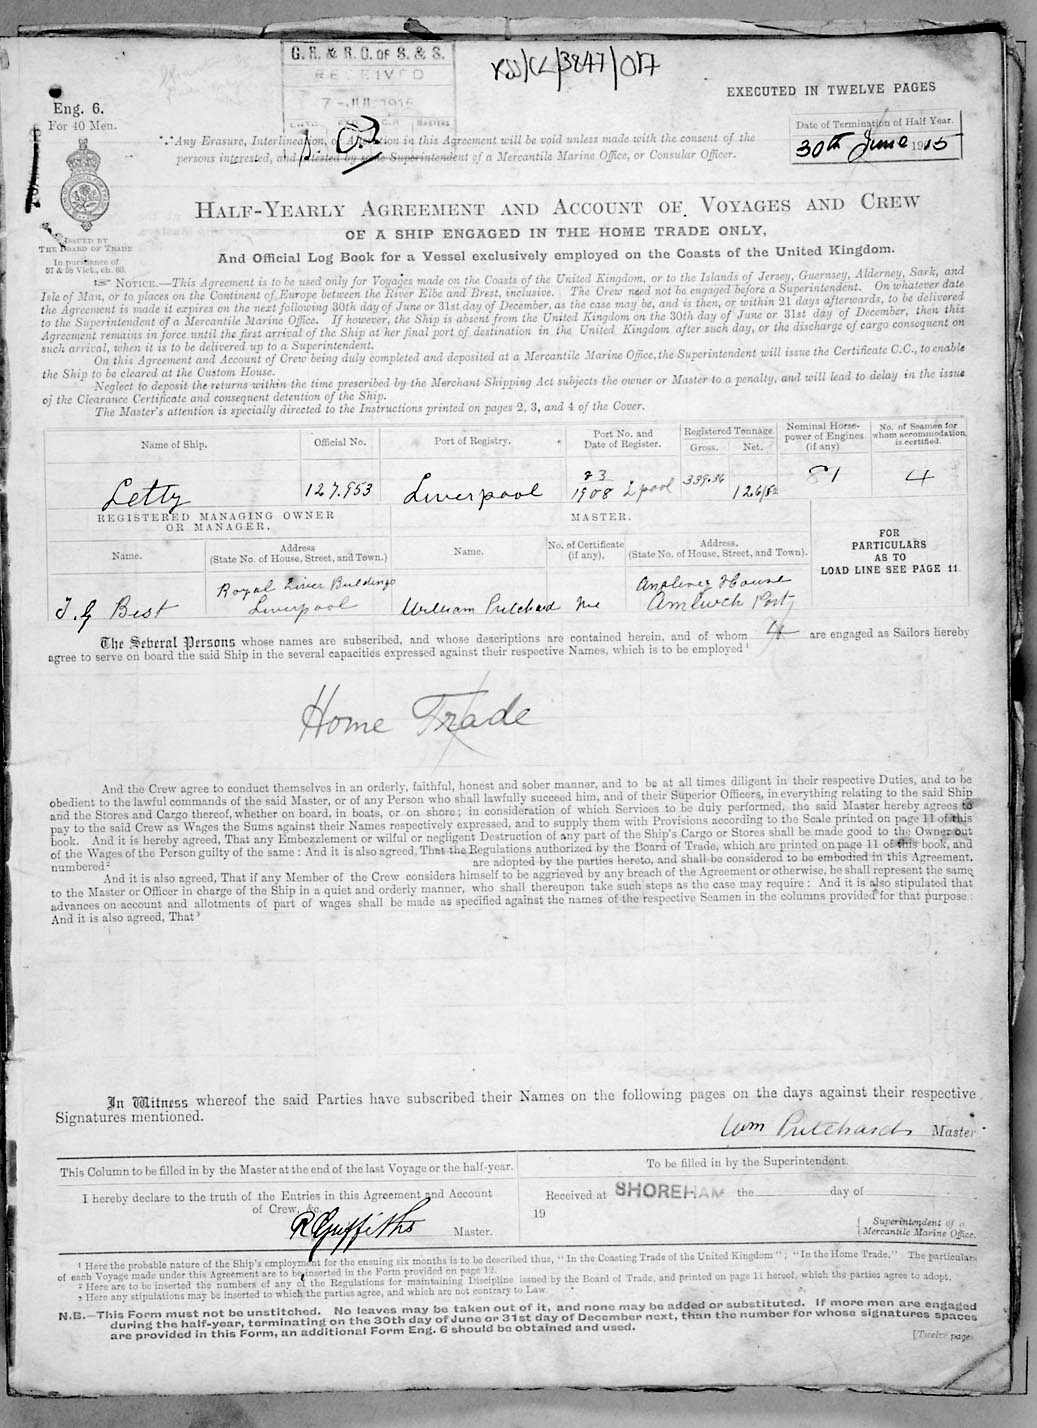 G. R. & R. O. OF S. & S.
RECEIVED
RSS/CL/3847/017
EXECUTED IN TWELVE PAGES
Eng. 6.
For 40 Men.
Any Erasure, Interlineation, or Alteration in this Agreement will be void unless made with the consent of the
persons interested, and attested by some Superintendent of a Mercantile Marine Office, or Consular Officer.
Date of Termination of Half Year.
30th June 1915
ISSUED BY
THE BOARD OF TRADE
In pursuance of
57 & 58 Vict., ch. 60.
HALF-YEARLY AGREEMENT AND ACCOUNT OF VOYAGES AND CREW
OF A SHIP ENGAGED IN THE HOME TRADE ONLY,
And Official Log Book for a Vessel exclusively employed on the Coasts of the United Kingdom.
NOTICE.—This Agreement is to be used only for Voyages made on the Coasts of the United Kingdom, or to the Islands of Jersey, Guernsey, Alderney, Sark, and
Isle of Man, or to places on the Continent of Europe between the River Elbe and Brest, inclusive. The Crew need not be engaged before a Superintendent. On whatever date
the Agreement is made it expires on the next following 30th day of June or 31st day of December, as the case may be, and is then, or within 21 days afterwards, to be delivered
to the Superintendent of a Mercantile Marine Office. If however, the Ship is absent from the United Kingdom on the 30th day of June or 31st day of December, then this
Agreement remains in force until the first arrival of the Ship at her final port of destination in the United Kingdom after such day, or the discharge of cargo consequent on
such arrival, when it is to be delivered up to a Superintendent.
On this Agreement and Account of Crew being duly completed and deposited at a Mercantile Marine Office, the Superintendent will issue the Certificate C.C., to enable
the Ship to be cleared at the Custom House.
Neglect to deposit the returns within the time prescribed by the Merchant Shipping Act subjects the owner or Master to a penalty, and will lead to delay in the issue
of the Clearance Certificate and consequent detention of the Ship.
The Master's attention is specially directed to the Instructions printed on pages 2, 3, and 4 of the Cover.
Name of Ship. Official No. Port of Registry. Port No. and Date of Register. Registered Tonnage Gross. Net. Nominal Horse-power of Engines (if any) No. of Seamen for whom accommodation is certified.
Letty 127.953 Liverpool 23 1908 Lpool 339.36 126/52 81 4
REGISTERED MANAGING OWNER
OR MANAGER.
MASTER.
Name. Address (State No. of House, Street, and Town.) Name. No. of Certificate (if any). Address. (State No. of House, Street, and Town).
FOR
PARTICULARS
AS TO
LOAD LINE SEE PAGE 11
Royal Liver Buildings
Liverpool
Best William Pritchard
House
Amlwch Port
The Several Persons whose names are subscribed, and whose descriptions are contained herein, and of whom 4 are engaged as Sailors hereby
agree to serve on board the said Ship in the several capacities expressed against their respective Names, which is to be employed 1
Home Trade
And the Crew agree to conduct themselves in an orderly, faithful, honest and sober manner, and to be at all times diligent in their respective Duties, and to be
obedient to the lawful commands of the said Master, or of any Person who shall lawfully succeed him, and of their Superior Officers, in everything relating to the said Ship
and the Stores and Cargo thereof, whether on board, in boats, or on shore; in consideration of which Services to be duly performed, the said Master hereby agrees to
pay to the said Crew as Wages the Sums against their Names respectively expressed, and to supply them with Provisions according to the Scale printed on page 11 of this
book. And it is hereby agreed, That any Embezzlement or wilful or negligent Destruction of any part of the Ship's Cargo or Stores shall be made good to the Owner out
of the Wages of the Person guilty of the same: And it is also agreed, That the Regulations authorized by the Board of Trade, which are printed on page 11 of this book, and
numbered 2 are adopted by the parties hereto, and shall be considered to be embodied in this Agreement.
And it is also agreed, That if any Member of the Crew considers himself to be aggrieved by any breach of the Agreement or otherwise, he shall represent the same
to the Master or Officer in charge of the Ship in a quiet and orderly manner, who shall thereupon take such steps as the case may require: And it is also stipulated that
advances on account and allotments of part of wages shall be made as specified against the names of the respective Seamen in the columns provided for that purpose:
And it is also agreed, That 3
In Witness whereof the said Parties have subscribed their Names on the following pages on the days against their respective
Signatures mentioned.
Wm Pritchard Master
This Column to be filled in by the Master at the end of the last Voyage or the half-year.
To be filled in by the Superintendent.
I hereby declare to the truth of the Entries in this Agreement and Account
of Crew, &c.
R Griffiths Master.
Received at SHOREHAM the day of
19
Superintendent of a
Mercantile Marine Office.
1 Here the probable nature of the Ship's employment for the ensuing six months is to be described thus, "In the Coasting Trade of the United Kingdom"; "In the Home Trade." The particulars
of each Voyage made under this Agreement are to be inserted in the Form provided on page 12.
2 Here are to be inserted the numbers of any of the Regulations for maintaining Discipline issued by the Board of Trade, and printed on page 11 hereof, which the parties agree to adopt.
3 Here any stipulations may be inserted to which the parties agree, and which are not contrary to Law.
N.B.—This Form must not be unstitched. No leaves may be taken out of it, and none may be added or substituted. If more men are engaged
during the half-year, terminating on the 30th day of June or 31st day of December next, than the number for whose signatures spaces
are provided in this Form, an additional Form Eng. 6 should be obtained and used.
[Twelve pages